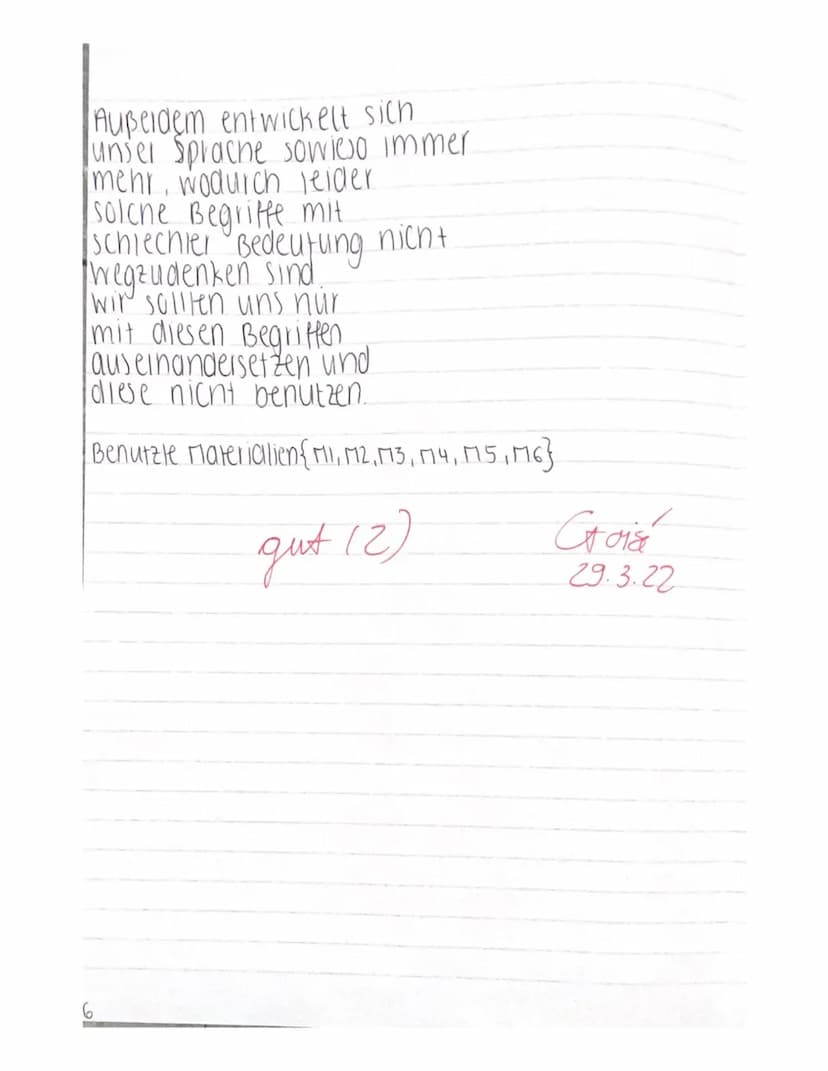 Außerdem entwickelt sich
unser Sprache sowieso immer
mehr, wodurch leider
solche Begriffe mit
schlechter Bedeutung nicht
wegzudenken sind.
wir sollten uns nur
mit diesen Begriffen
auseinandersetzen und
diese nicht benutzen.
Benutzte Materialien{M1, M2, M3, M4, M5, M6}
gut (2)
29.3.22
6